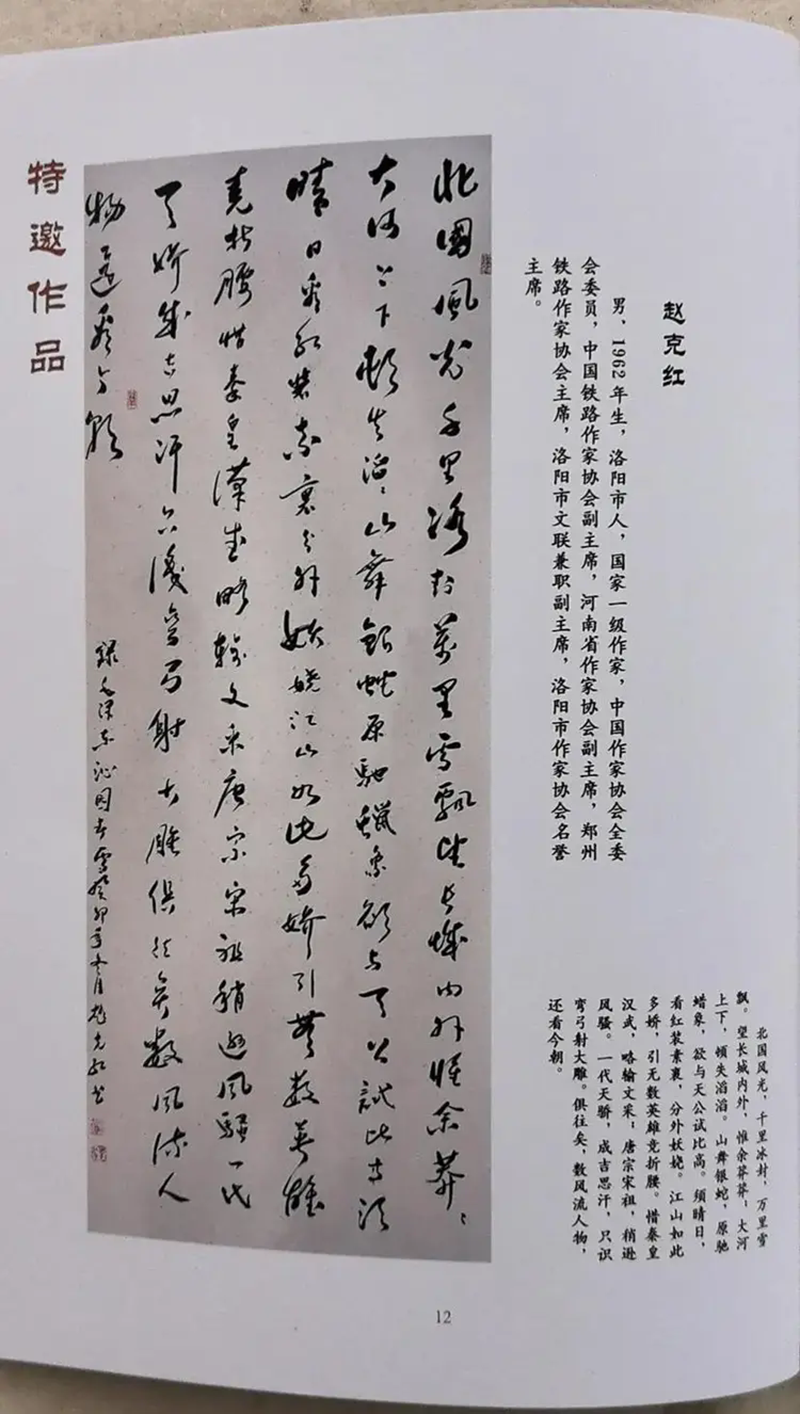 赵克红
男、1962年生，洛阳市人，国家一级作家，中国作家协会全委
会委员，中国铁路作家协会副主席，河南省作家协会副主席，郑州
铁路作家协会主席，洛阳市文联兼职副主席，洛阳市作家协会名誉
主席。
北国风光，千里冰封，万里雪
飘。望长城内外，惟余莽莽；大河
上下，顿失滔滔。山舞银蛇，原驰
蜡象，欲与天公试比高。须晴日，
看红装素裹，分外妖娆。江山如此
多娇，引无数英雄竞折腰。惜秦皇
汉武，略输文采；唐宗宋祖，稍逊
风骚。一代天骄，成吉思汗，只识
弯弓射大雕。俱往矣，数风流人物，
还看今朝。
北國風光千里冰封萬里雪飄望長城内外惟余莽〻
大河上下頓失滔〻山舞銀蛇原馳蠟象欲与天公試比高須
晴日看紅裝素裹分外妖嬈江山如此多嬌引無數英雄
竞折腰惜秦皇漢武略輸文采唐宗宋祖稍遜風騷一代
天嬌成吉思汗只識彎弓射大雕俱往矣數風流人
物還看今朝
錄毛澤东沁园春雪癸卯年冬月赵克红书
特邀作品
12